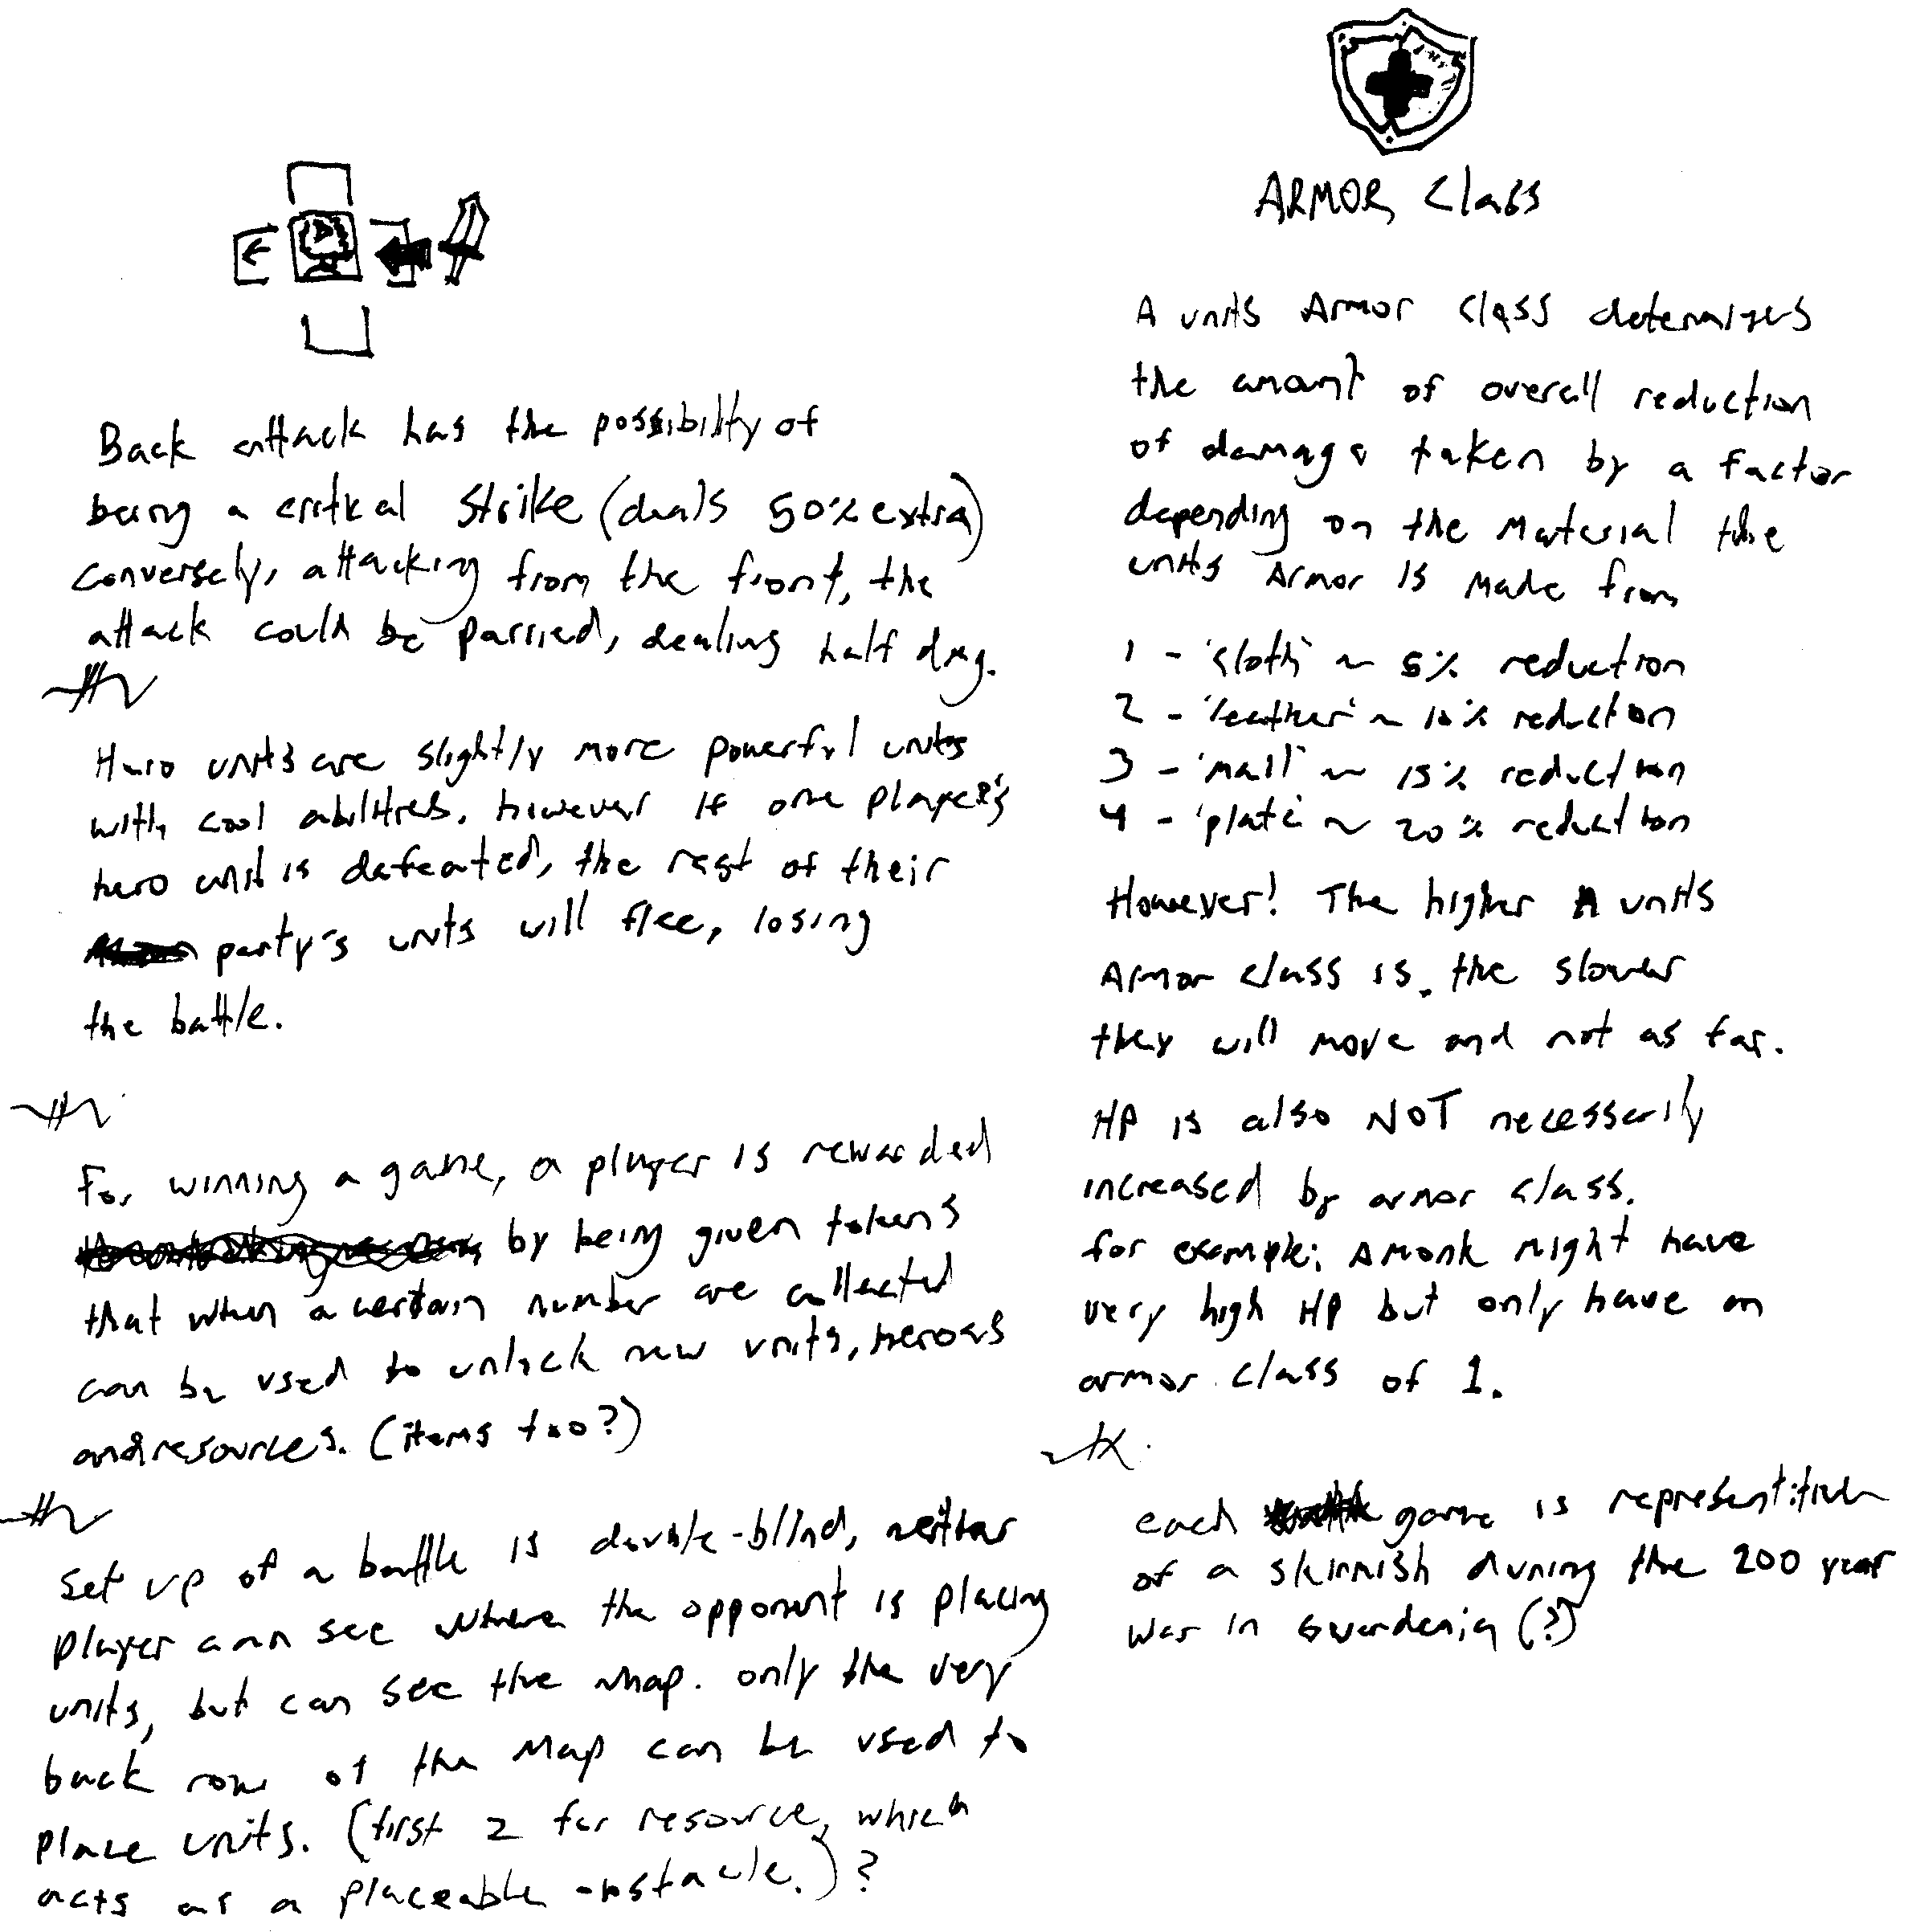 Back attack has the possibility of
being a critical strike (deals 50% extra)
conversely, attacking from the front, the
attack could be parried, dealing half dmg.
Hero units are slightly more powerful units
with cool abilities. however if one player's
hero unit is defeated, the rest of their
party's units will flee, losing
the battle.
For winning a game, a player is rewarded
by being given tokens
that when a certain number are collected
can be used to unlock new units, heroes
and resources. (items too?)
Set up of a battle is double-blind, neither
player can see where the opponent is placing
units, but can see the map. only the very
back row of the map can be used to
place units. (first 2 for resource, which
acts as a placeable obstacle.)?
ARMOR Class
A units Armor class determines
the amount of overall reduction
of damage taken by a factor
depending on the material the
units Armor is made from
1 - 'cloth' ~ 5% reduction
2 - 'leather' ~ 10% reduction
3 - 'mail' ~ 15% reduction
4 - 'plate' ~ 20% reduction
However! The higher A units
Armor class is, the slower
they will move and not as far.
HP is also NOT necessarily
increased by armor class.
for example: A monk might have
very high HP but only have an
armor class of 1.
each game is representitive
of a skirmish during the 200 year
war in (?)